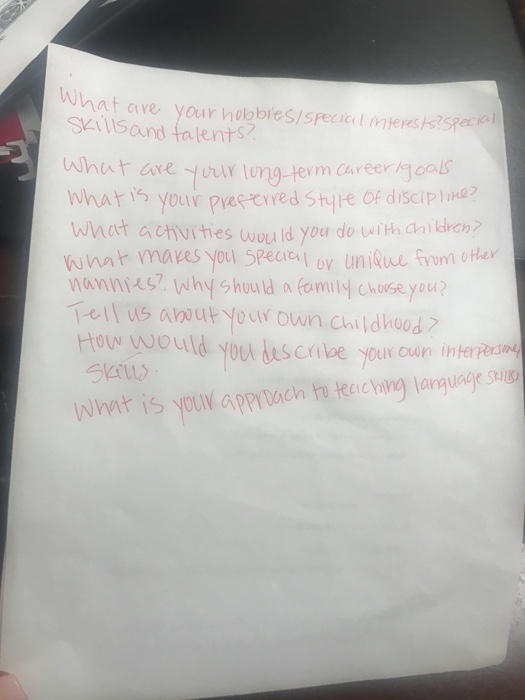 What are your hobbies/special interests? special
skills and talents?
What are your long-term career/goals
What is your preferred style of discipline?
What activities would you do with children?
What makes you special or unique from other
nannies? Why should a family choose you?
Tell us about your own childhood?
How would you describe your own interpersonal
skills.
What is your approach to teaching language skills